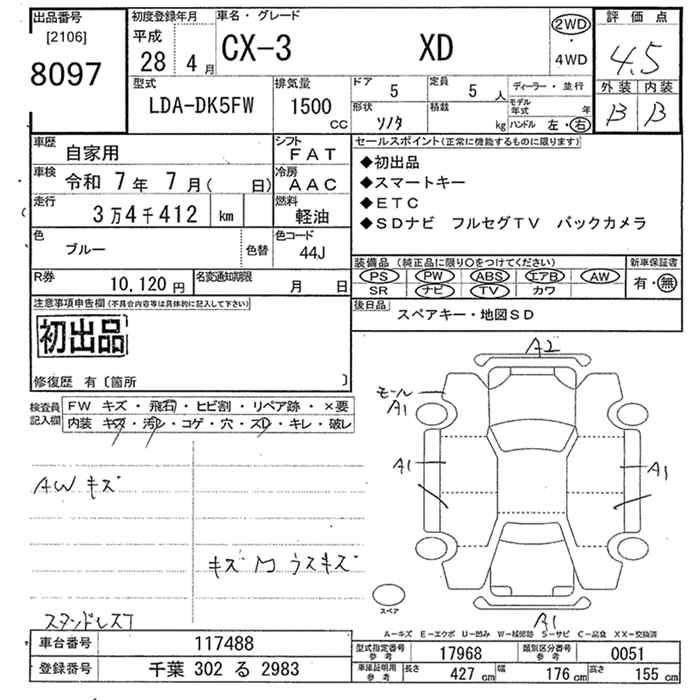 出品番号 初度登録年月 車名・グレード 評価点
[2106] 平成 CX-3 XD 2WD 4.5
8097 28年 4月 4WD 外装 内装
型式 排気量 ドア 5 定員 5人 ディーラー・並行 B B
LDA-DK5FW 1500 CC 形状 ソノタ 積載 kg モデル年式 年
ハンドル 左・右
車歴 自家用 シフト FAT セールスポイント(正常に機能するものに限ります)
車検 令和 7年 7月( 日) 冷房 AAC ◆初出品
走行 3万4千412 km 燃料 軽油 ◆スマートキー
◆ETC
◆SDナビ フルセグTV バックカメラ
色 ブルー 色替 色コード 44J
装備品 (純正品に限り○をつけてください) 新車保証書
PS PW ABS エアB AW 有・無
SR ナビ TV カワ
R券 10,120円 名変通知期限 月 日
後日品 スペアキー・地図SD
注意事項申告欄(不具合内容等は具体的に記入して下さい)
初出品
修復歴 有〔箇所 〕
検査員記入欄 FW キズ・飛石・ヒビ割・リペア跡・×要
内装 キズ・汚レ・コゲ・穴・スレ・キレ・破レ
A2
モール
A1
A1 A1
AWキズ
キズ ウスキズ
スペア
A1
A—キズ E—エクボ U—凹み W—補修跡 S—サビ C—腐食 XX—交換済
車台番号 117488 型式指定番号 参考 17968 類別区分番号 参考 0051
登録番号 千葉 302 る 2983 車庫証明用 参考 長さ 427 cm 幅 176 cm 高さ 155 cm